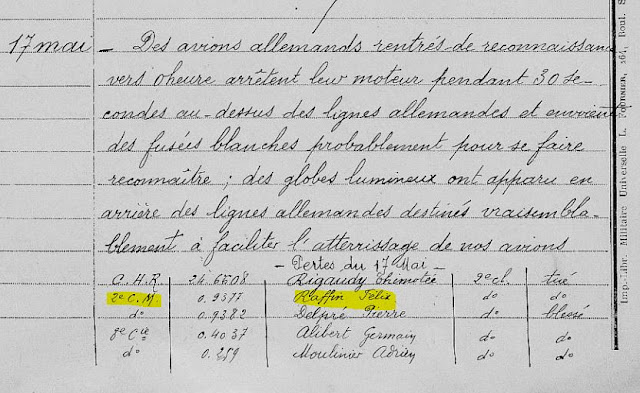 17 mai — Des avions allemands rentrés de reconnaissan
vers 0 heure arrêtent leur moteur pendant 30 se-
condes au-dessus des lignes allemandes et envoient
des fusées blanches probablement pour se faire
reconnaître ; des globes lumineux ont apparu en
arrière des lignes allemandes destinés vraisembla-
blement à faciliter l'atterrissage de nos avions
— Pertes du 17 Mai —
C.H.R 24.6608 Rigaudy Thimotée 2e cl. tué
2e C.M 0.9377 Raffin Félix do do
do 0.9382 Delpré Pierre do blessé
8e Cie 0.4037 Alibert Germain do do
do 0.259 Moulinier Adrien do do
Imp.-Libr. Militaire Universelle L. Fournier, 264, Boul. S